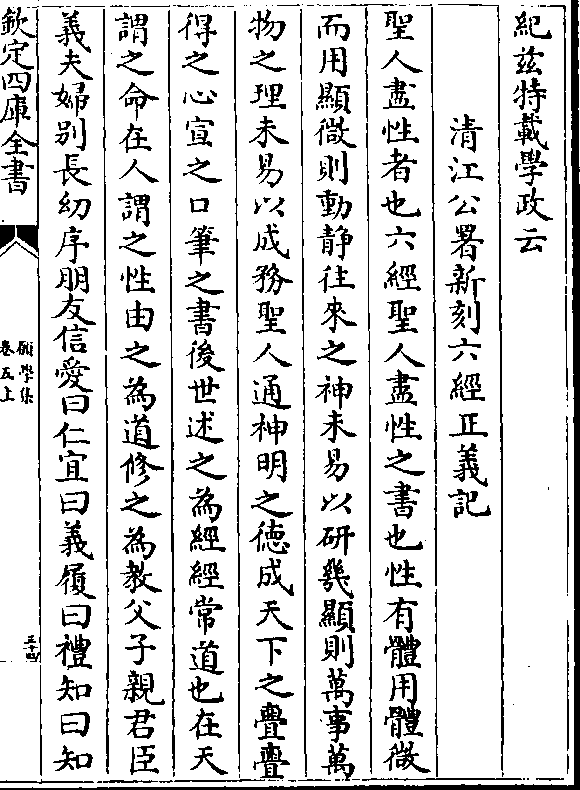 紀兹特載學政云
清江公署新刻六經正義記
聖人盡性者也六經聖人盡性之書也性有體用體微
而用顯微則動静往來之神未易以研幾顯則萬事萬
物之理未易以成務聖人通神明之德成天下之亹亹
得之心宣之口筆之書後世述之為經經常道也在天
謂之命在人謂之性由之為道修之為教父子親君臣
義夫婦别長幼序朋友信愛曰仁宜曰義履曰禮知曰知
欽定四庫全書
願學集
卷五上
三十四